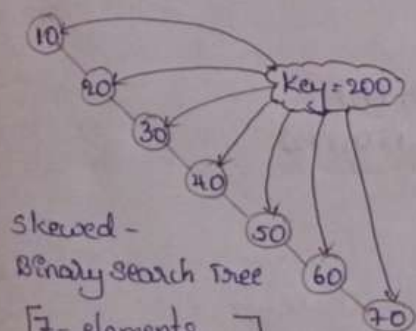 10
20
Key = 200
30
40
50
60
70
Skewed -
Binary Search Tree
[7- elements ]